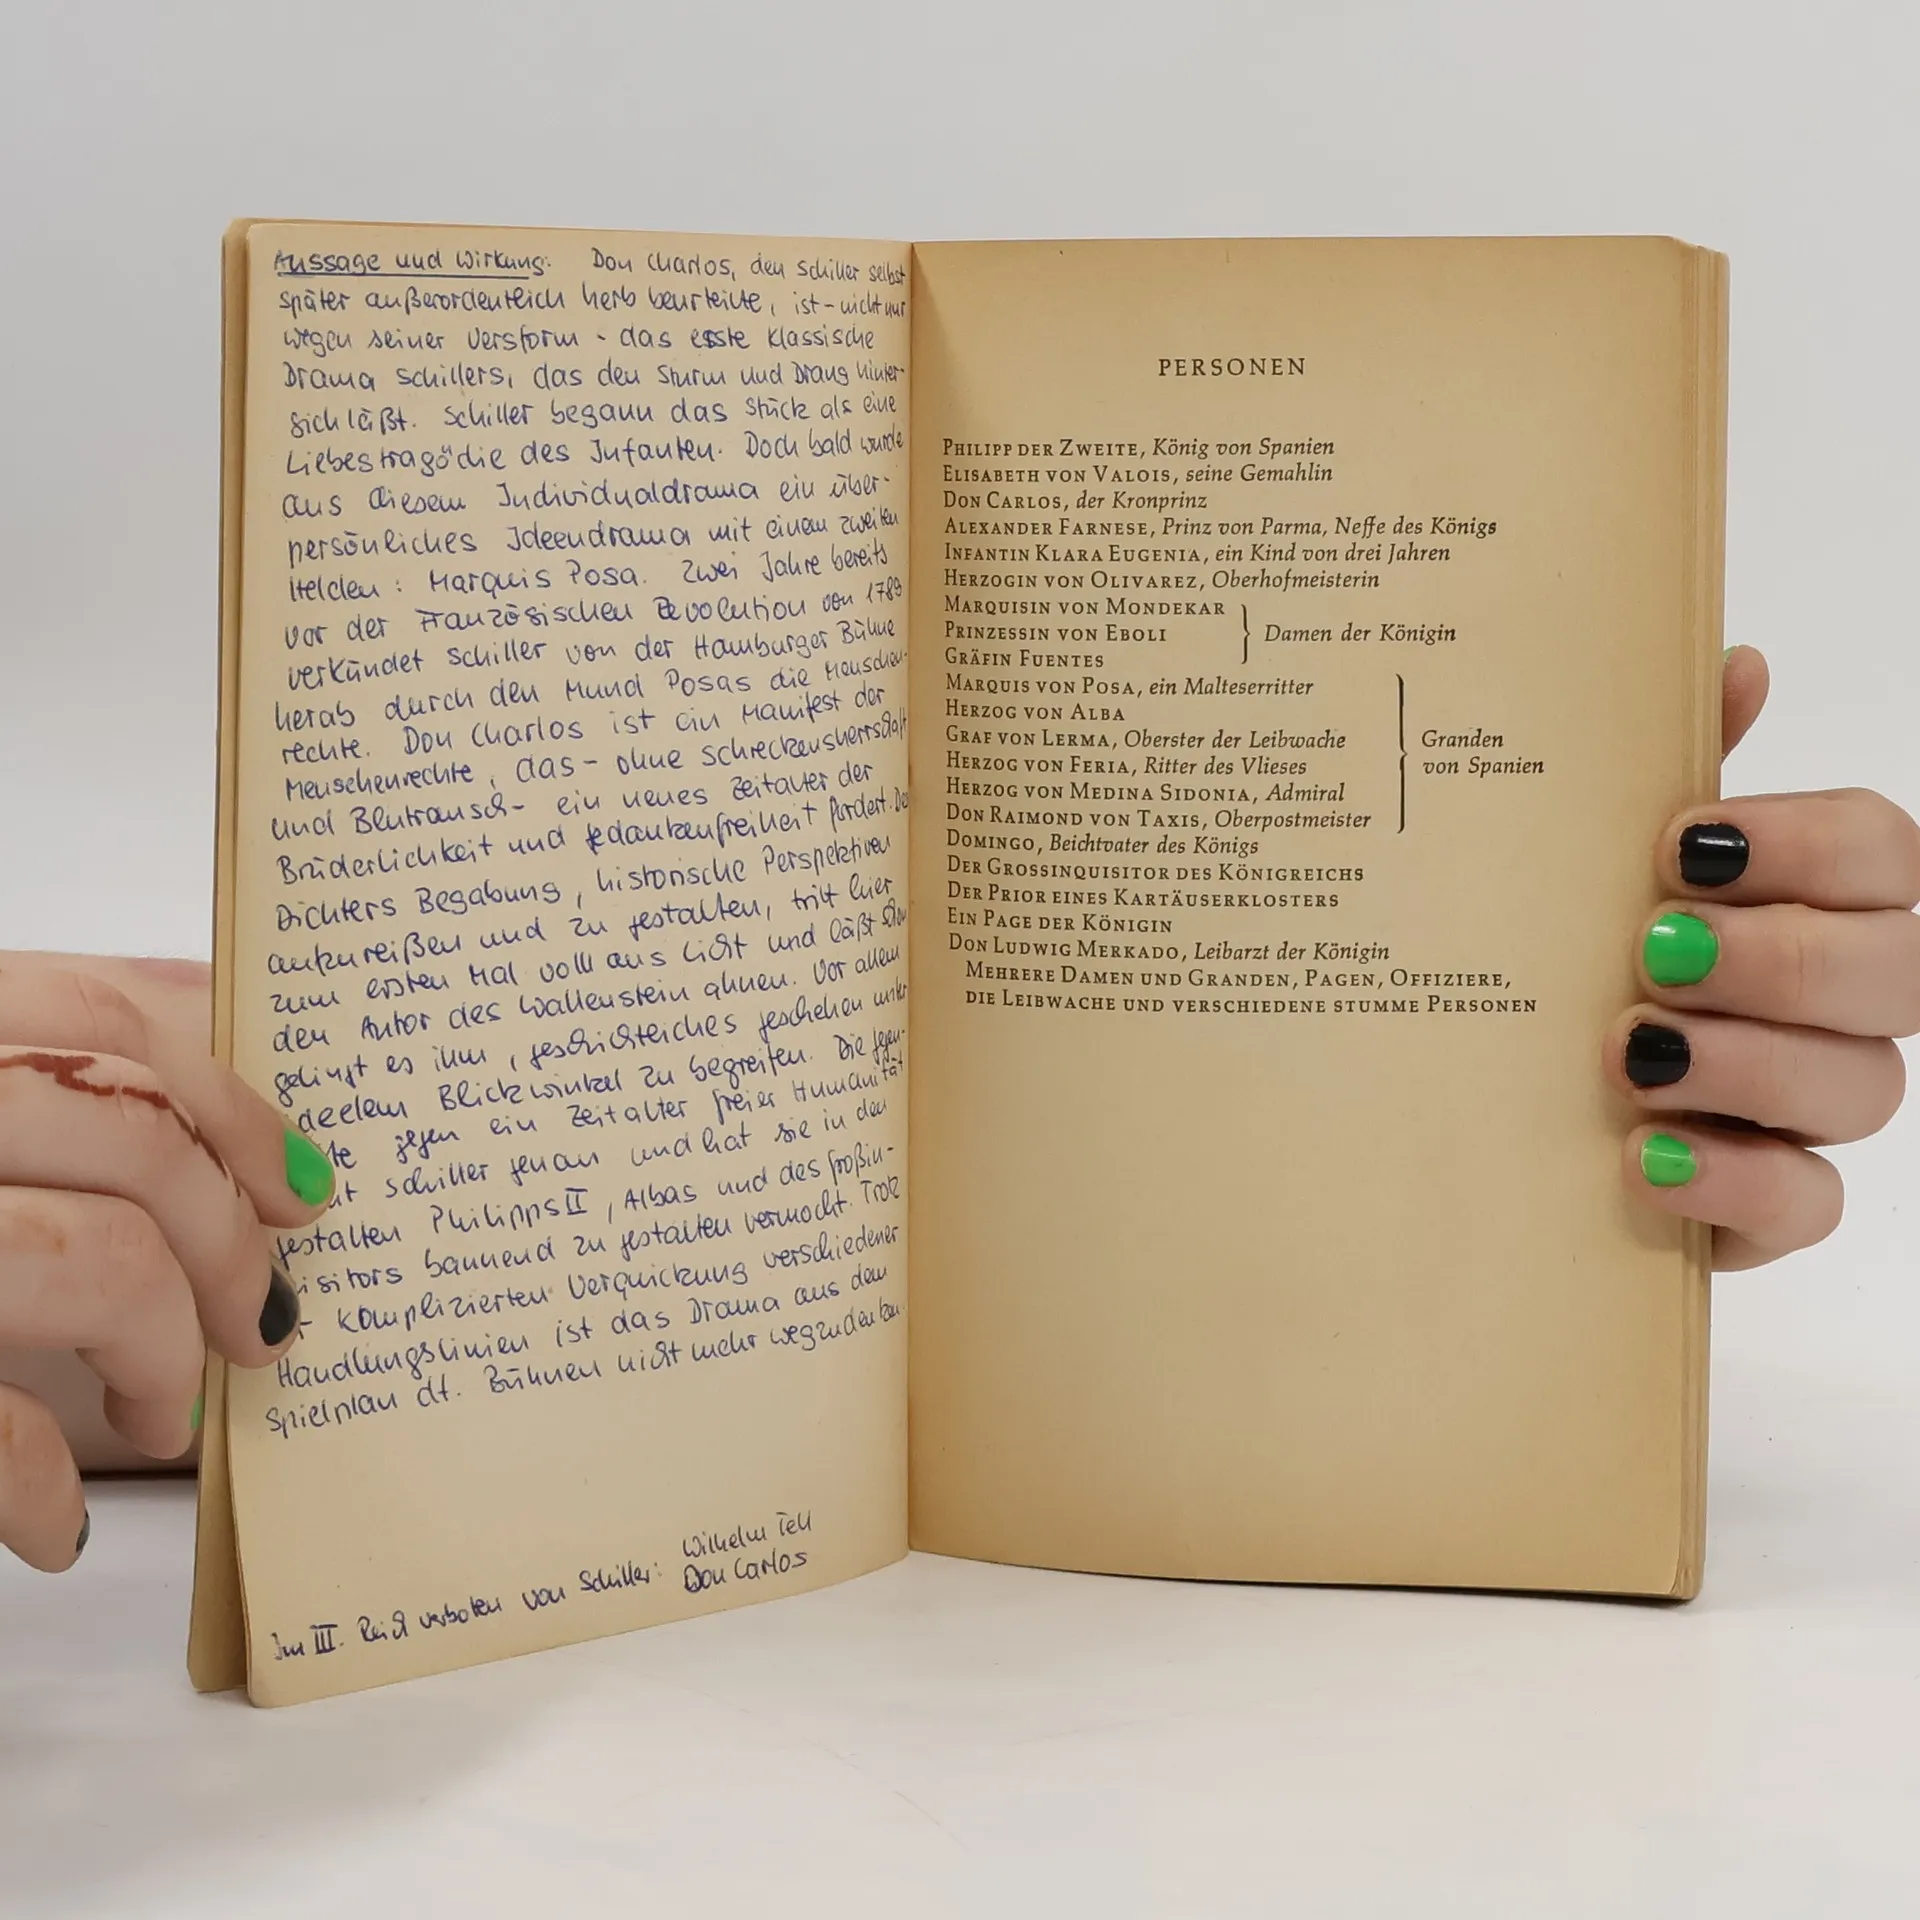 Aussage und Wirkung: Don Charlos, den Schiller selbst
später außerordentlich herb beurteilte, ist - nicht nur
wegen seiner Versform - das erste klassische
Drama Schillers, das den Sturm und Drang hinter-
sich läßt. Schiller begann das Stück als eine
Liebestragödie des Infanten. Doch bald wurde
aus diesem Individualdrama ein über-
persönliches Ideendrama mit einem zweiten
Helden: Marquis Posa. Zwei Jahre bereits
vor der Französischen Revolution von 1789
verkündet Schiller von der Hamburger Bühne
herab durch den Mund Posas die Menschen-
rechte. Don Charlos ist ein Manifest der
Menschenrechte, das - ohne Schreckensherrschaft
und Blutrausch - ein neues Zeitalter der
Brüderlichkeit und Gedankenfreiheit fordert. Des
Dichters Begabung, historische Perspektiven
aufzureißen und zu gestalten, tritt hier
zum ersten Mal voll ans Licht und läßt schon
den Autor des Wallenstein ahnen. Vor allem
gelingt es ihm, geschichtliches Geschehen unter
ideelem Blickwinkel zu begreifen. Die Gegen-
gegen ein Zeitalter freier Humanität
Schiller genau und hat sie in den
gestalten Philipps II, Albas und des Großin-
isitors bannend zu gestalten vermocht. Trotz
komplizierten Verquickung verschiedener
Handlungslinien ist das Drama aus dem
Spielplan dt. Bühnen nicht mehr wegzudenken.
Im III. Reich verboten von Schiller: Wilhelm Tell
Don Carlos
PERSONEN
PHILIPP DER ZWEITE, König von Spanien
ELISABETH VON VALOIS, seine Gemahlin
DON CARLOS, der Kronprinz
ALEXANDER FARNESE, Prinz von Parma, Neffe des Königs
INFANTIN KLARA EUGENIA, ein Kind von drei Jahren
HERZOGIN VON OLIVAREZ, Oberhofmeisterin
MARQUISIN VON MONDEKAR
PRINZESSIN VON EBOLI
GRÄFIN FUENTES
Damen der Königin
MARQUIS VON POSA, ein Malteserritter
HERZOG VON ALBA
GRAF VON LERMA, Oberster der Leibwache
HERZOG VON FERIA, Ritter des Vlieses
HERZOG VON MEDINA SIDONIA, Admiral
DON RAIMOND VON TAXIS, Oberpostmeister
Granden
von Spanien
DOMINGO, Beichtvater des Königs
DER GROSSINQUISITOR DES KÖNIGREICHS
DER PRIOR EINES KARTÄUSERKLOSTERS
EIN PAGE DER KÖNIGIN
DON LUDWIG MERKADO, Leibarzt der Königin
MEHRERE DAMEN UND GRANDEN, PAGEN, OFFIZIERE,
DIE LEIBWACHE UND VERSCHIEDENE STUMME PERSONEN